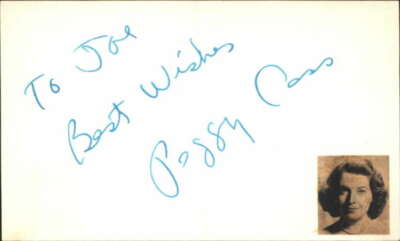 To Joe
Best Wishes
Peggy Cass